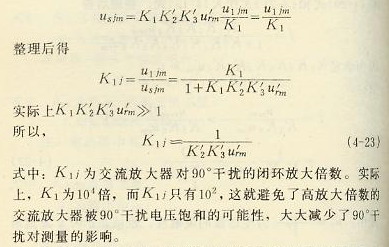 u_{sjm}=K_1K'_2K'_3u'_{rm}\frac{u_{1jm}}{K_1}=\frac{u_{1jm}}{K_1}
整理后得
K_{1j}=\frac{u_{1jm}}{u_{sjm}}=\frac{K_1}{1+K_1K'_2K'_3u'_{rm}}
实际上K_1K'_2K'_3u'_{rm}≫1
所以,
K_{1j}=\frac{1}{K'_2K'_3u'_{rm}} (4-23)
式中：K_{1j}为交流放大器对90°干扰的闭环放大倍数。实际
上，K_1为10^4倍，而K_{1j}只有10^2，这就避免了高放大倍数的
交流放大器被90°干扰电压饱和的可能性，大大减少了90°干
扰对测量的影响。